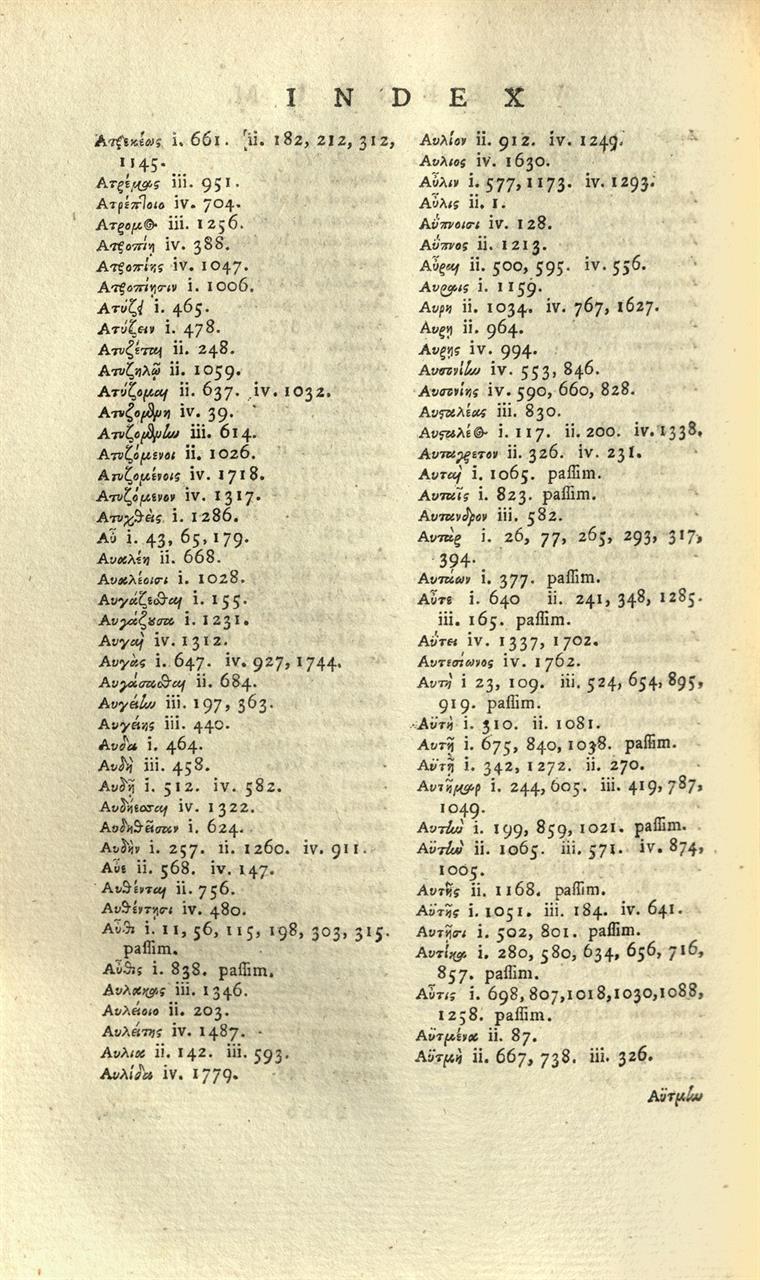 INDEX
Ατρεκέως i. 661. ii. 182, 212, 312,
1145.
Ατρέμας iii. 951.
Ατρέπλοιο iv. 704.
Ατρομος iii. 1256.
Ατροπίη iv. 388.
Ατροπίης iv. 1047.
Ατροπίησιν i. 1006.
Ατύζει i. 465.
Ατύζειν i. 478.
Ατυζέται ii. 248.
Ατυζηλῷ ii. 1059.
Ατύζομαι ii. 637. iv. 1032.
Ατυζομένη iv. 39.
Ατυζομένην iii. 614.
Ατυζόμενοι ii. 1026.
Ατυζομένοις iv. 1718.
Ατυζόμενον iv. 1317.
Ατυχθεὶς i. 1286.
Αὖ i. 43, 65, 179.
Αυαλέη ii. 668.
Αυαλέοισι i. 1028.
Αυγάζεσθαι i. 155.
Αυγάζουσα i. 1231.
Αυγαὶ iv. 1312.
Αυγὰς i. 647. iv. 927, 1744.
Αυγάσασθαι ii. 684.
Αυγείην iii. 197, 363.
Αυγείης iii. 440.
Αυδα i. 464.
Αυδὴ iii. 458.
Αυδῇ i. 512. iv. 582.
Αυδήεσσαι iv. 1322.
Αυδηθεῖσαν i. 624.
Αυδὴν i. 257. ii. 1260. iv. 911.
Αὖε ii. 568. iv. 147.
Αυθένται ii. 756.
Αυθέντησι iv. 480.
Αὖθι i. 11, 56, 115, 198, 303, 315.
passim.
Αὖθις i. 838. passim.
Αυλακας iii. 1346.
Αυλείοιο ii. 203.
Αυλείτης iv. 1487.
Αυλια ii. 142. iii. 593.
Αυλίδα iv. 1779.
Αυλίον ii. 912. iv. 1249.
Αυλιος iv. 1630.
Αὖλιν i. 577, 1173. iv. 1293.
Αὖλις ii. 1.
Αὔπνοισι iv. 128.
Αὔπνος ii. 1213.
Αὖραι ii. 500, 595. iv. 556.
Αυραις i. 1159.
Αυρη ii. 1034. iv. 767, 1627.
Αυρῃ ii. 964.
Αυρης iv. 994.
Αυσονίην iv. 553, 846.
Αυσονίης iv. 590, 660, 828.
Αυσταλέας iii. 830.
Αυσταλέος i. 117. ii. 200. iv. 1338.
Αυταγρετον ii. 326. iv. 231.
Αυταὶ i. 1065. passim.
Αυταῖς i. 823. passim.
Αυτανδρον iii. 582.
Αυτὰρ i. 26, 77, 265, 293, 317,
394.
Αυτάων i. 377. passim.
Αὖτε i. 640 ii. 241, 348, 1285.
iii. 165. passim.
Αὔτει iv. 1337, 1702.
Αυτεσίωνος iv. 1762.
Αυτὴ i 23, 109. iii. 524, 654, 895,
919. passim.
Αϋτὴ i. 310. ii. 1081.
Αυτῇ i. 675, 840, 1038. passim.
Αϋτῇ i. 342, 1272. ii. 270.
Αυτῆμαρ i. 244, 605. iii. 419, 787,
1049.
Αυτὴν i. 199, 859, 1021. passim.
Αϋτὴν ii. 1065. iii. 571. iv. 874,
1005.
Αυτῆς ii. 1168. passim.
Αϋτῆς i. 1051. iii. 184. iv. 641.
Αυτῇσι i. 502, 801. passim.
Αυτίκα i. 280, 580, 634, 656, 716,
857. passim.
Αὖτις i. 698, 807, 1018, 1030, 1088,
1258. passim.
Αϋτμένα ii. 87.
Αϋτμὴ ii. 667, 738. iii. 326.
Αϋτμὴν